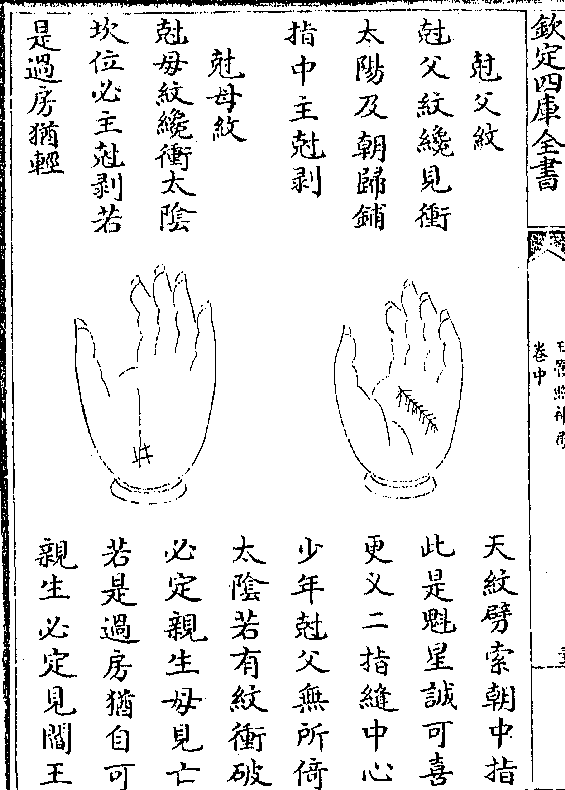 欽定四庫全書
卷中
尅父紋
尅父紋纔見衝
太陽及朝歸鋪
指中主尅剥
尅母紋
尅母紋纔衝太陰
坎位必主尅剥若
是過房猶輕
天紋劈索朝中指
此是魁星誠可喜
更义二指縫中心
少年尅父無所倚
太陰若有紋衝破
必定親生母見亡
若是過房猶自可
親生必定見閻王